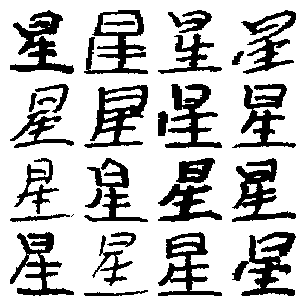 星星星星
星星星星
星星星星
星星星星